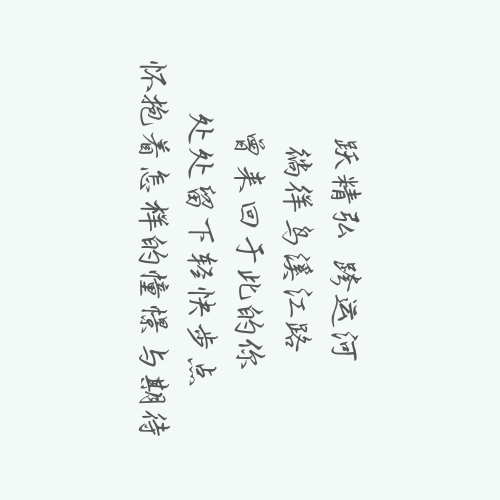 跃精弘 跨运河
徜徉乌溪江路
曾来回于此的你
处处留下轻快步点
怀抱着怎样的憧憬与期待